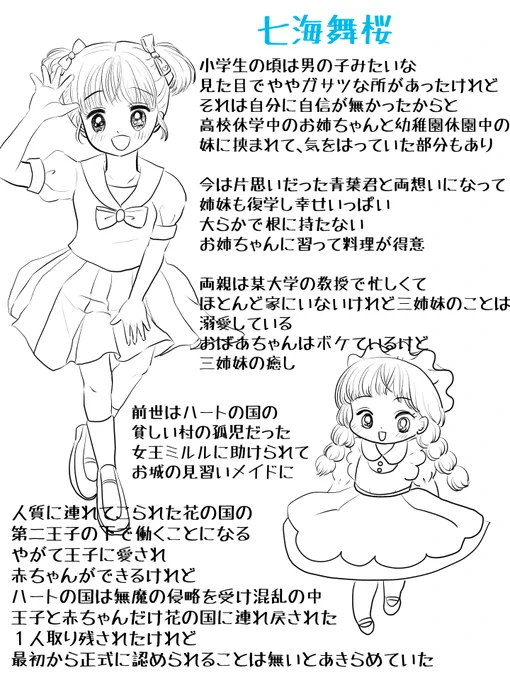 七海舞桜
小学生の頃は男の子みたいな
見た目でややガサツな所があったけれど
それは自分に自信が無かったからと
高校休学中のお姉ちゃんと幼稚園休園中の
妹に挟まれて、気をはっていた部分もあり
今は片思いだった青葉君と両想いになって
姉妹も復学し幸せいっぱい
大らかで根に持たない
お姉ちゃんに習って料理が得意
両親は某大学の教授で忙しくて
ほとんど家にいないけれど三姉妹のことは
溺愛している
おばあちゃんはボケているけど
三姉妹の癒し
前世はハートの国の
貧しい村の孤児だった
女王ミルルに助けられて
お城の見習いメイドに
人質に連れてこられた花の国の
第二王子の下で働くことになる
やがて王子に愛され
赤ちゃんができるけれど
ハートの国は無魔の侵略を受け混乱の中
王子と赤ちゃんだけ花の国に連れ戻された
1人取り残されたけれど
最初から正式に認められることは無いとあきらめていた